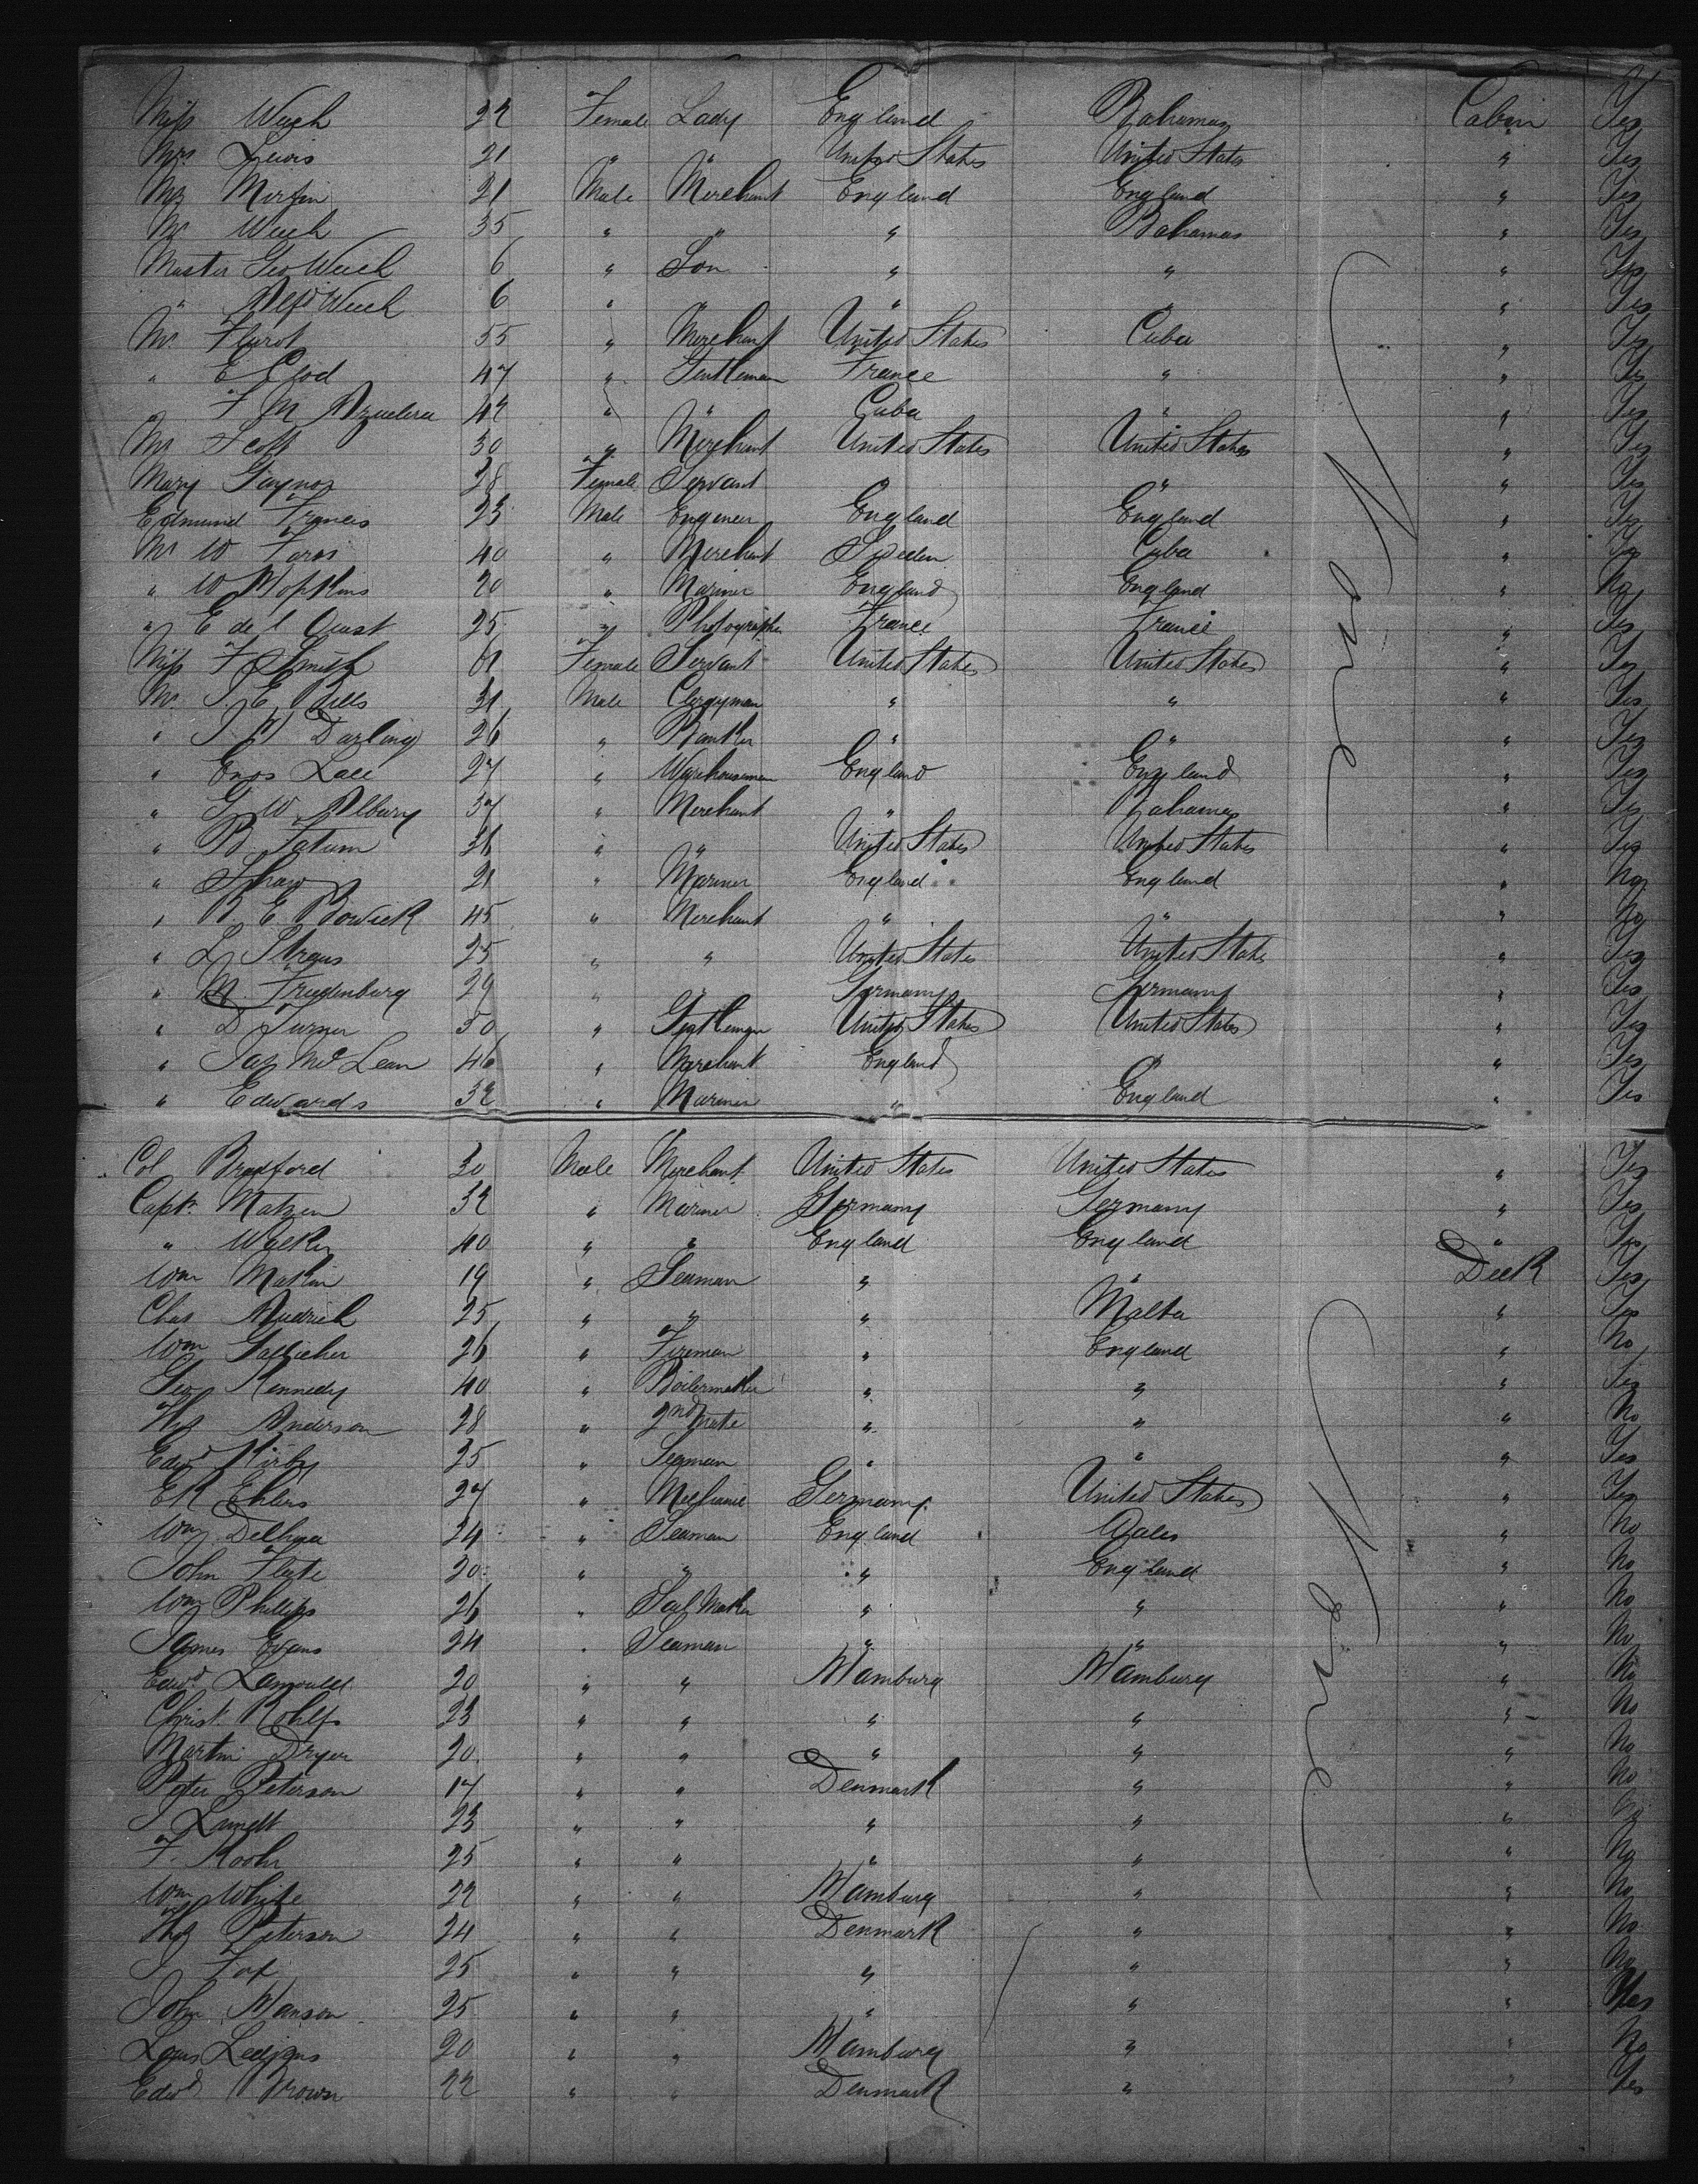 Miss Weech 22 Female Lady England Bahamas Cabin Yes
Mrs Lewis 21 " " United States United States " Yes
Mr 21 Male Merchant England England " Yes
Mr Weech 35 " " " Bahamas " Yes
Master Geo Weech 6 " Son " " " Yes
" Weech 6 " " " " " Yes
Mr 55 " Merchant United States Cuba " Yes
" E 47 " Gentleman France " " Yes
F M 42 " " Cuba " " Yes
Mr Scott 30 " Merchant United States United States " Yes
Mary Gaynor 28 Female Servant " " " Yes
Edmund Francis 23 Male Engineer England England " Yes
Mr W 40 " Merchant Sweden Cuba " Yes
" W Hopkins 20 " Mariner England England " No
" E de l 25 " Photographer France France " Yes
Miss F Smith 61 Female Servant United States United States " Yes
Mr J. E. Bills 31 Male Clergyman " " " Yes
" J H Darling 26 " Banker " " " Yes
" Enos Lace 27 " Warehouseman England England " Yes
" G W Albury 37 " Merchant " Bahamas " Yes
" B Tatum 36 " " United States United States " Yes
" Shaw 21 " Mariner England England " No
" B. E. Bowick 45 " Merchant " " " No
" L Straus 25 " " United States United States " Yes
" M. Frudenburg 29 " " Germany Germany " Yes
" D Turner 50 " Gentleman United States United States " Yes
" Jas McLean 46 " Merchant England " " Yes
" Edwards 32 " Mariner " England " Yes
Col Bradford 30 Male Merchant United States United States " Yes
Capt. Matzen 32 " Mariner Germany Germany " Yes
" Walker 40 " " England England " Yes
Wm Makin 19 " Seaman " " Deck Yes
Chas 25 " " " Malta " Yes
Wm Gallicher 26 " Fireman " England " No
Geo Kennedy 40 " Boilermaker " " " Yes
Thos Anderson 28 " 2nd Mate " " " No
Edwd Kirby 25 " Seaman " " " Yes
E R Ehlers 27 " Mechanic Germany United States " Yes
Wm 24 " Seaman England Wales " No
John Flute 20 " " " England " No
Wm Phillips 26 " Sail Maker " " " No
James Evans 24 " Seaman " " " No
Edwd 20 " " Hamburg Hamburg " No
Christ. Rohlfs 23 " " " " " No
Martin Dryer 20 " " " " " No
Peter Peterson 17 " " Denmark " " No
J Lundt 23 " " " " " No
F. Koohn 25 " " " " " No
Wm White 22 " " Hamburg " " No
Thos Peterson 24 " " Denmark " " No
J Fox 25 " " " " " No
John Hanson 25 " " " " " Yes
Louis 20 " " Hamburg " " No
Edwd Brown 22 " " Denmark " " Yes